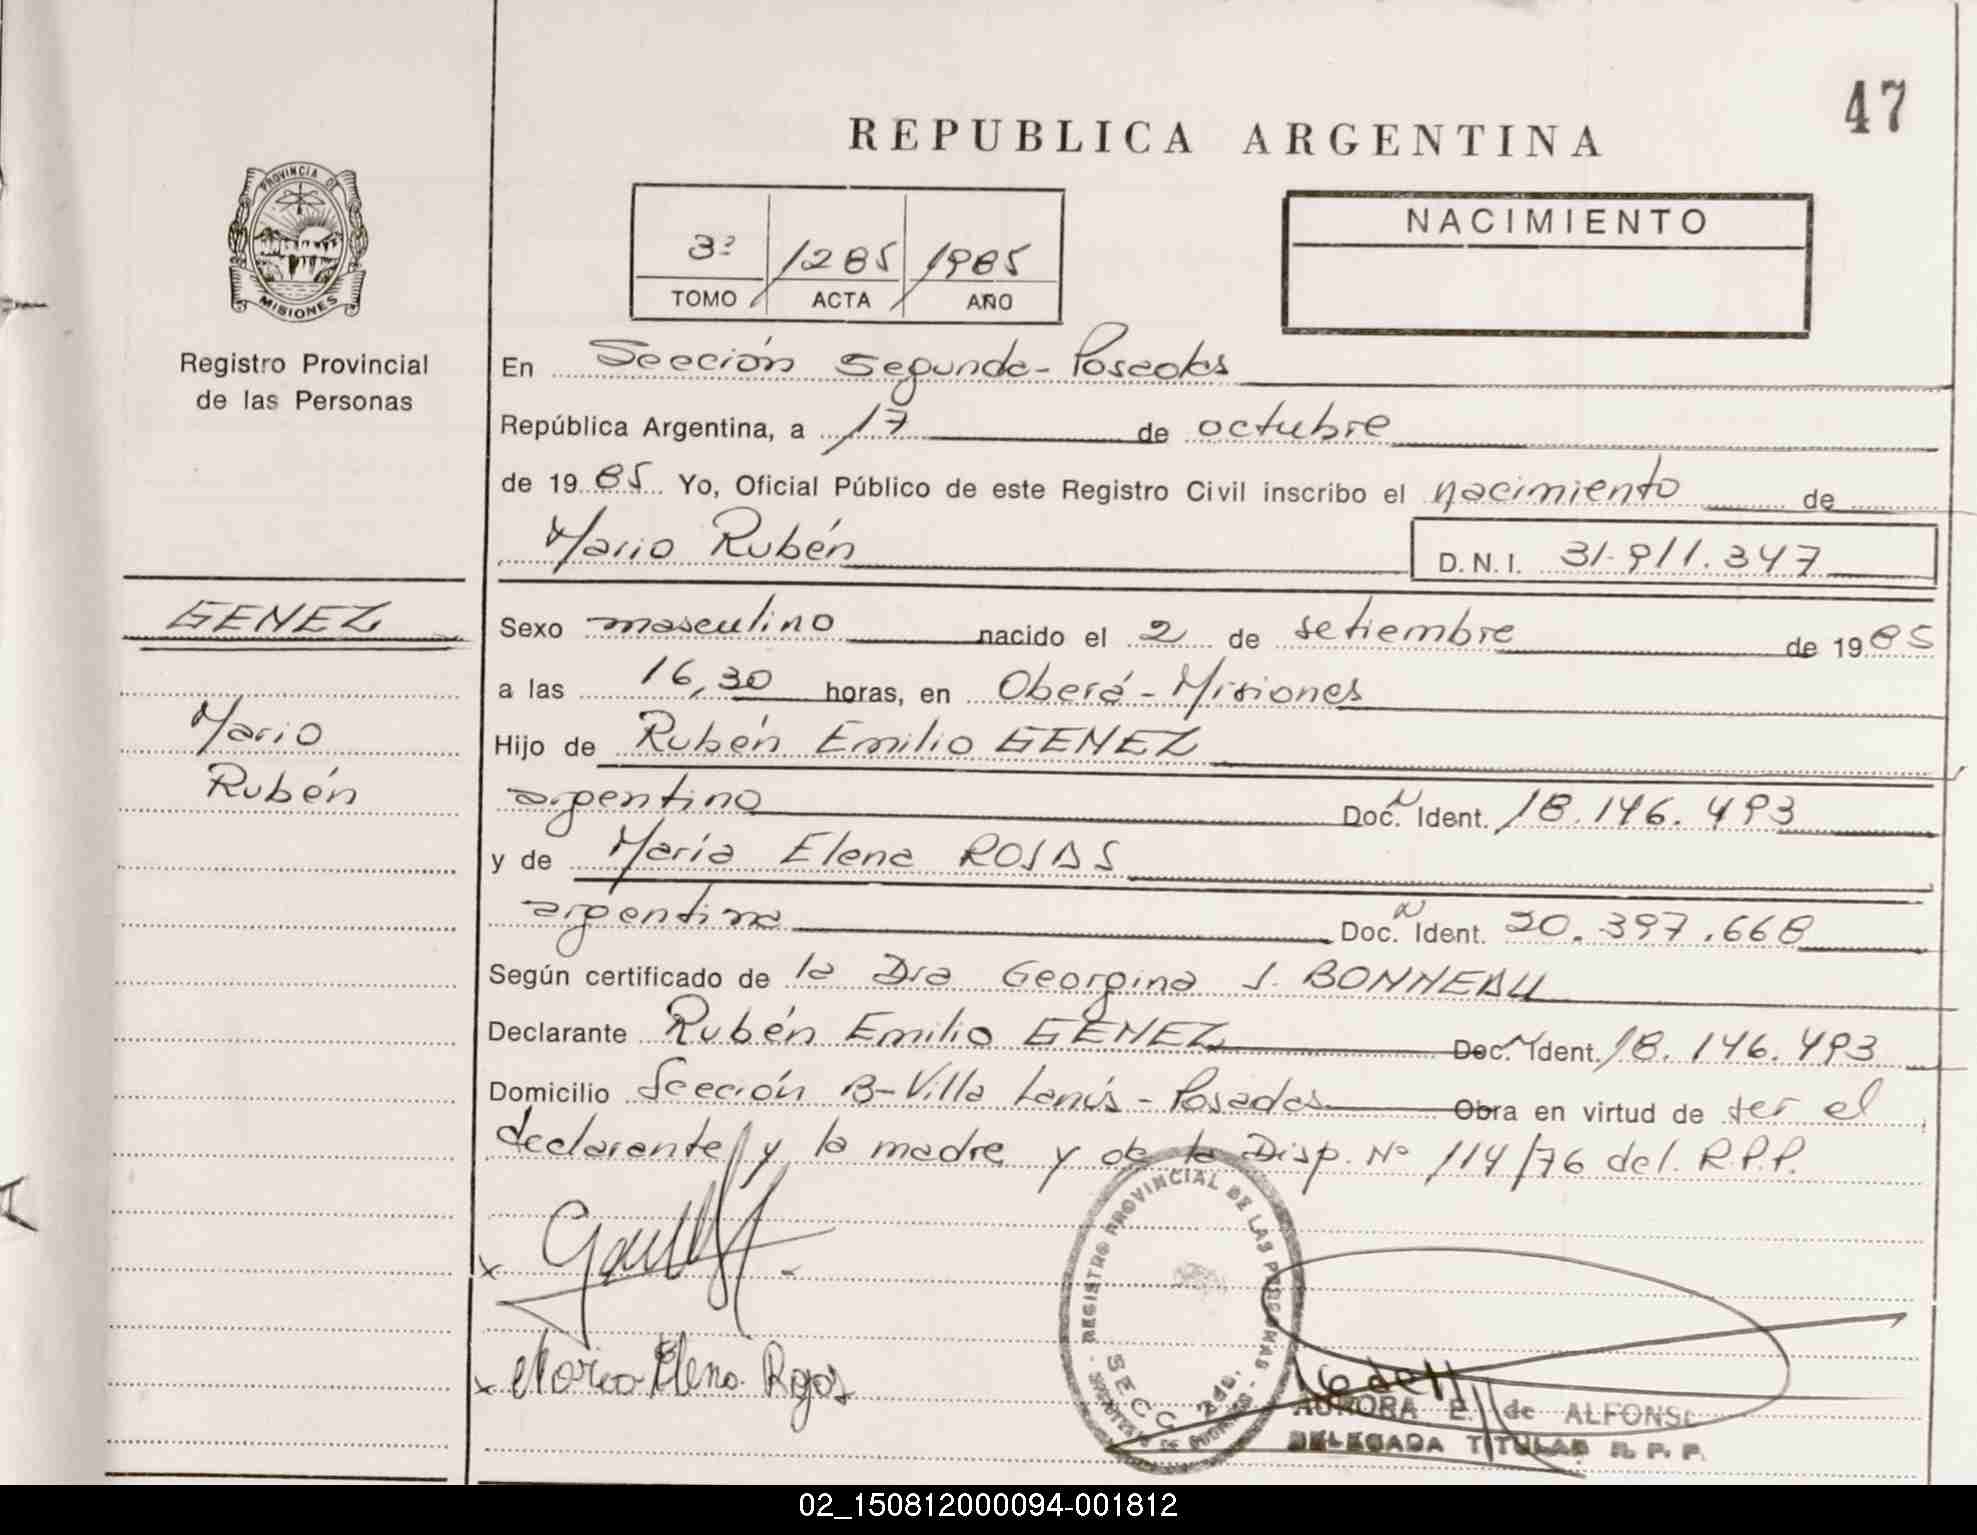 47
REPUBLICA ARGENTINA
PROVINCIA DE
MISIONES
Registro Provincial
de las Personas
3º 1285 1985
TOMO ACTA AÑO
NACIMIENTO
En Sección Segunda - Posadas
República Argentina, a 17 de octubre
de 1985 Yo, Oficial Público de este Registro Civil inscribo el nacimiento de
Mario Rubén D.N.I. 31.911.347
GENEZ
Mario
Rubén
Sexo masculino nacido el 2 de setiembre de 1985
a las 16,30 horas, en Oberá - Misiones
Hijo de Rubén Emilio GENEZ
argentino Doc. N Ident. 18.146.493
y de María Elena ROJAS
argentina Doc. N Ident. 20.397.668
Según certificado de la Dra Georgina J. BONNEAU
Declarante Rubén Emilio GENEZ Doc. N Ident. 18.146.493
Domicilio Sección B - Villa Lanús - Posadas Obra en virtud de ser el
declarante y la madre y de la Disp. Nº 114/76 del R.P.P.
REGISTRO PROVINCIAL DE LAS PERSONAS
SECC 2da.
x
x Maria Elena Rojas
AURORA E. de ALFONSO
DELEGADA TITULAR R. P. P.
02_150812000094-001812